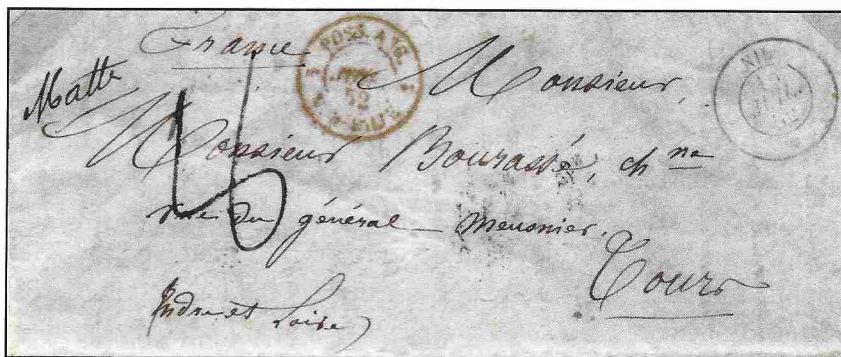 France
Malte
Monsieur,
Monsieur Bourassé, ch ne
rue du général Meusnier.
Tours
Indre et Loire
POSS. ANG.
52
NIL